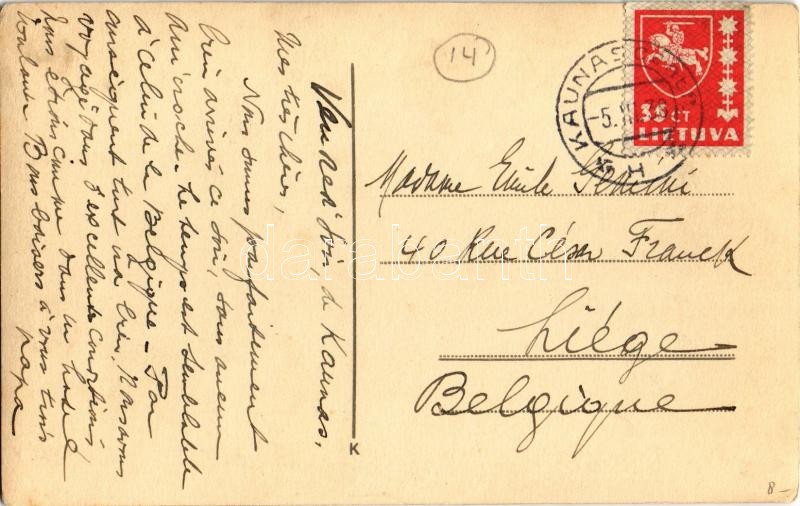 Vendredi soir, de Kaunas,
Mes très chères,
Nous sommes parfaitement
bien arrivés ce soir, sans aucun
anicroche. Le temps est semblable
à celui de la Belgique – Par
conséquent tout va bien. Nous avons
voyagé dans d'excellentes conditions
nous étions comme dans un hotel
roulant. Bons baisers à vous trois
papa
K
14
KAUNAS
-5.
I
35 CT
LIETUVA
Madame Emile
40 Rue César Franck
Liége
Belgique
8-
darabanth